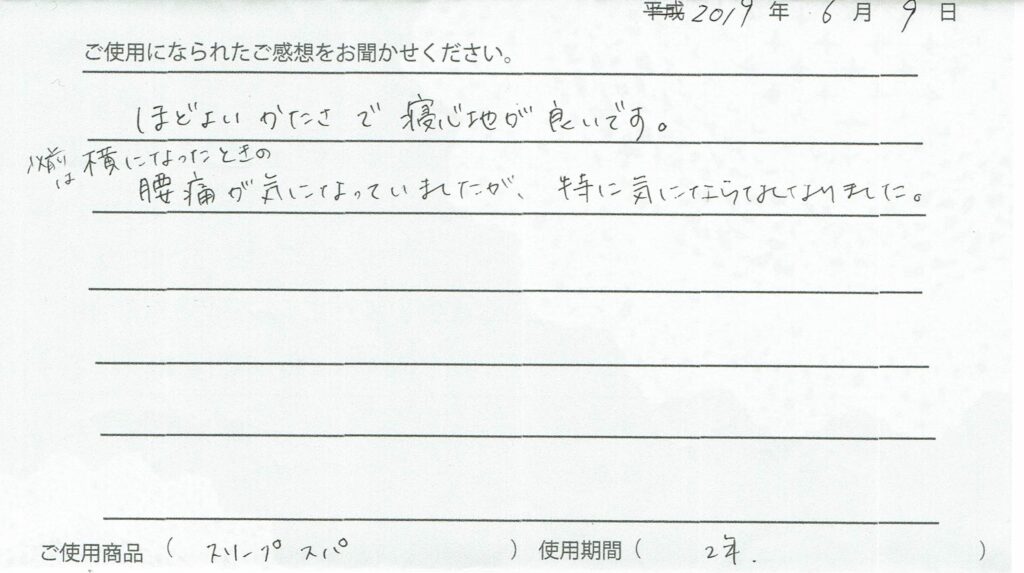 平成 2019 年 6 月 9 日
ご使用になられたご感想をお聞かせください。
ほどよい かたさ で 寝心地が 良いです。
以前は 横になったときの
腰痛が気になっていましたが、特に気にならなくなりました。
ご使用商品 ( スリープ スパ ) 使用期間 ( 2年. )